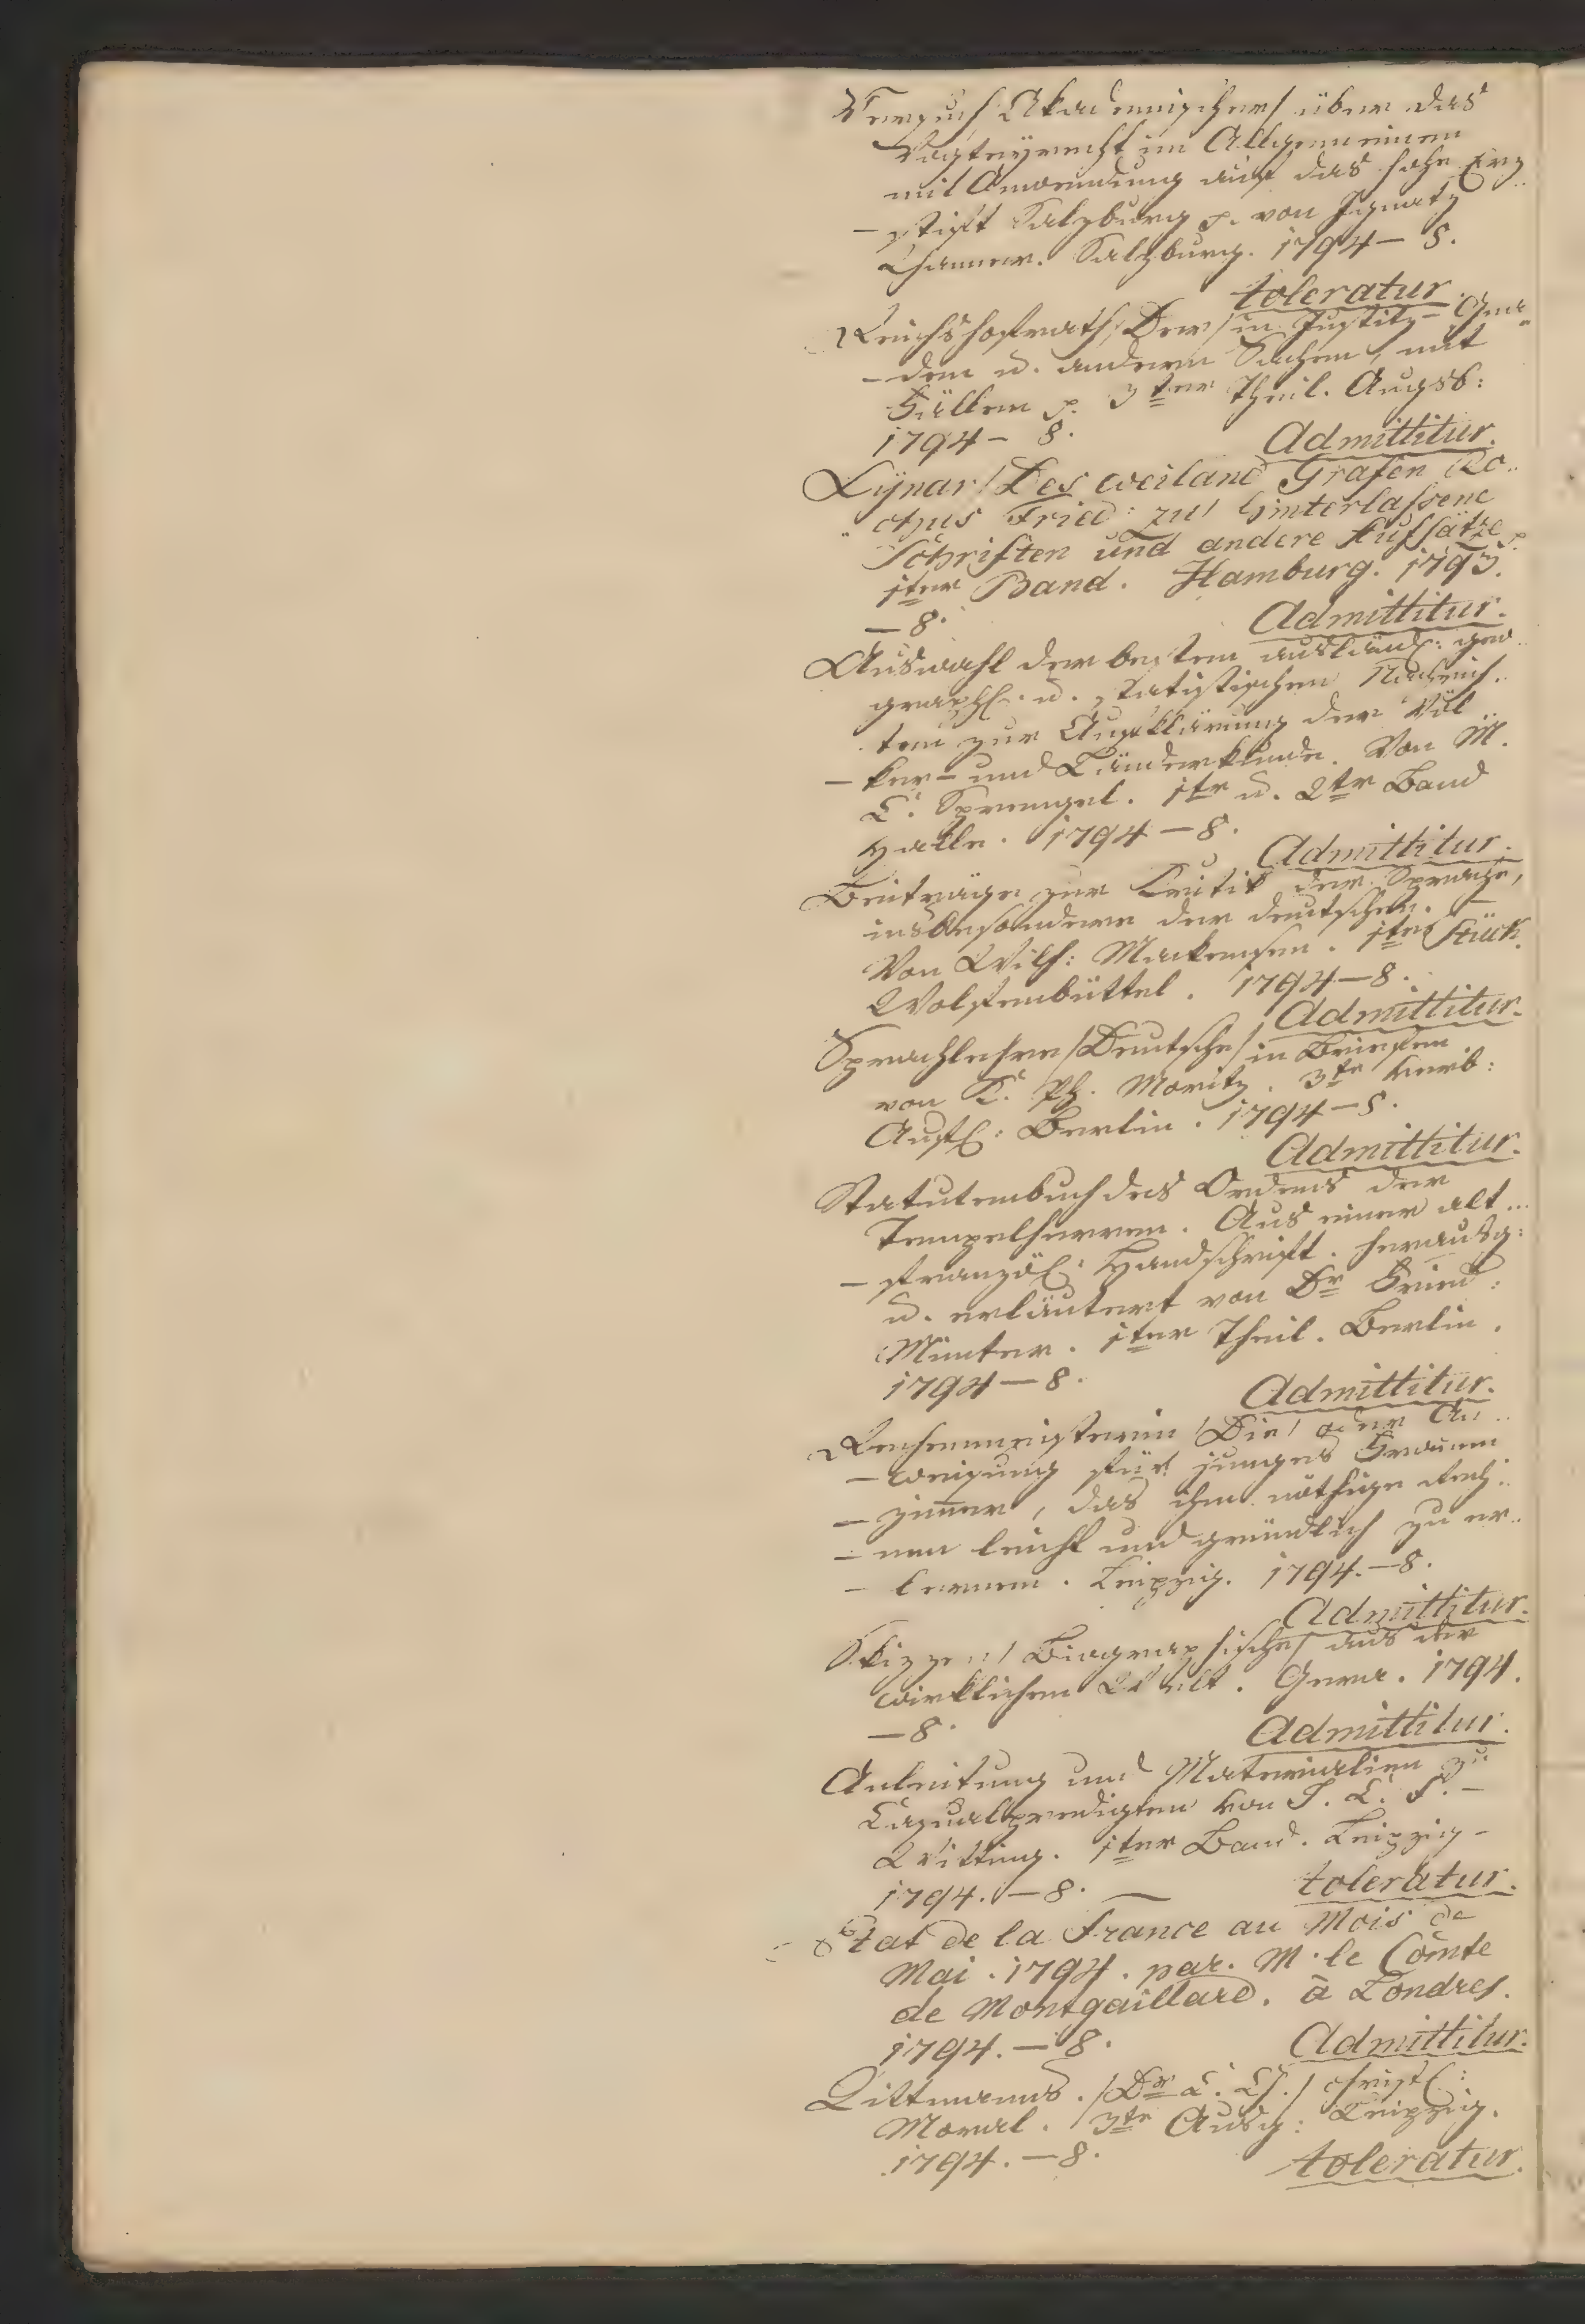 Versuch /Akademischer/ über das
Vogteyrecht im Allgemeinen
mit Anwendung auf das hohe Erz
- stift Salzburg p. von Ignatz
Thanner. Salzburg. 1794 - 8.
toleratur.
Reichshofrath /Der/ in Justitz- Gna-
- den u. andern Sachen, mit
Fällen p. 3ter Theil. Augsb:
1794 - 8. Admittitur.
Lÿnar /Des weiland Grafen Ro..
.. chus Fried: zu/ hinterlassene
Schriften und andere Aufsätze p.
1ter Band. Hamburg. 1793.
- 8. Admittitur.
Auswahl der besten ausländ: geo..
graph. u. statistischen Nachrich..
ten zur Aufklärung der Völ..
- ker- und Länderkunde. Von M.
C. Sprengel. 1te u. 2te Band
Halle. 1794 - 8.
Admittitur.
Beiträge zur Kritik der Sprache,
insbesondere der deutschen. -
Von Wilh: Mackensen. 1tes Stück.
Wolfenbüttel. 1794 - 8.
Admittitur.
Sprachlehre /Deutsche/ in Briefen
von K. Ph. Moritz. 3te verb:
Aufl: Berlin. 1794 - 8.
Admittitur.
Statutenbuch des Ordens der
Tempelherren. Aus einer alt...
- französ: Handschrift. herausg:
u. erläutert von Dr Fried:
Münter. 1ter Theil. Berlin.
1794 - 8. Admittitur.
Rechenmeisterin /Die/ oder An..
- weisung für junges Frauen
- zimer, das ihm nöthige Rech..
- nen leicht und gründlich zu er..
- lernen. Leipzig. 1794. - 8.
Admittitur.
Skizzen /Biographische/ aus der
wirklichen Welt. Gera. 1794.
- 8. Admittitur.
Anleitung und Materialien zu
Casualpredigten von J. C. F. -
Witting. 1ter Band. Leipzig -
1794. - 8. - toleratur.
Etat de la France au Mois de
Mai. 1794. par. M. le Comte
de Montgaillard. à Londres.
1794. - 8. Admittitur.
Tittmanns. /Dr C. Ch./ christl:
Moral. 3te Ausg: Leipzig.
1794. - 8. toleratur.